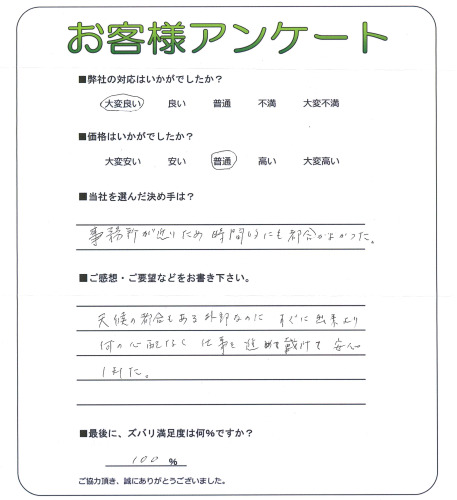 お客様アンケート
■弊社の対応はいかがでしたか?
大変良い 良い 普通 不満 大変不満
■価格はいかがでしたか?
大変安い 安い 普通 高い 大変高い
■当社を選んだ決め手は?
事務所が近いため時間的にも都合がよかった。
■ご感想・ご要望などをお書き下さい。
天候の都合もある外部なのに すぐに出来
何の心配もなく 仕事を進めて戴けて安心
した。
■最後に、ズバリ満足度は何%ですか?
100 %
ご協力頂き、誠にありがとうございました。